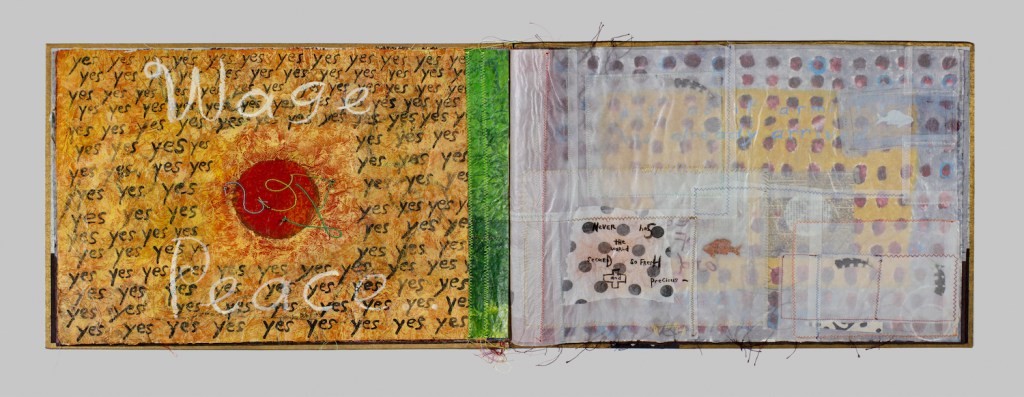 yes yes yes yes yes yes yes yes yes
yes yes yes yes yes yes yes yes
Wage
yes yes yes yes yes yes yes yes
yes yes yes yes yes yes yes yes
yes yes yes yes yes yes yes yes
yes yes yes yes yes yes
yes yes yes yes yes yes
yes yes yes yes yes
yes yes yes yes yes
yes yes yes yes yes
yes yes yes yes yes
Peace
yes yes yes yes yes yes
yes yes yes yes yes yes
yes yes yes yes yes yes
yes yes yes yes yes yes yes yes
Never has
the
world
seemed so Fresh
And
precious -